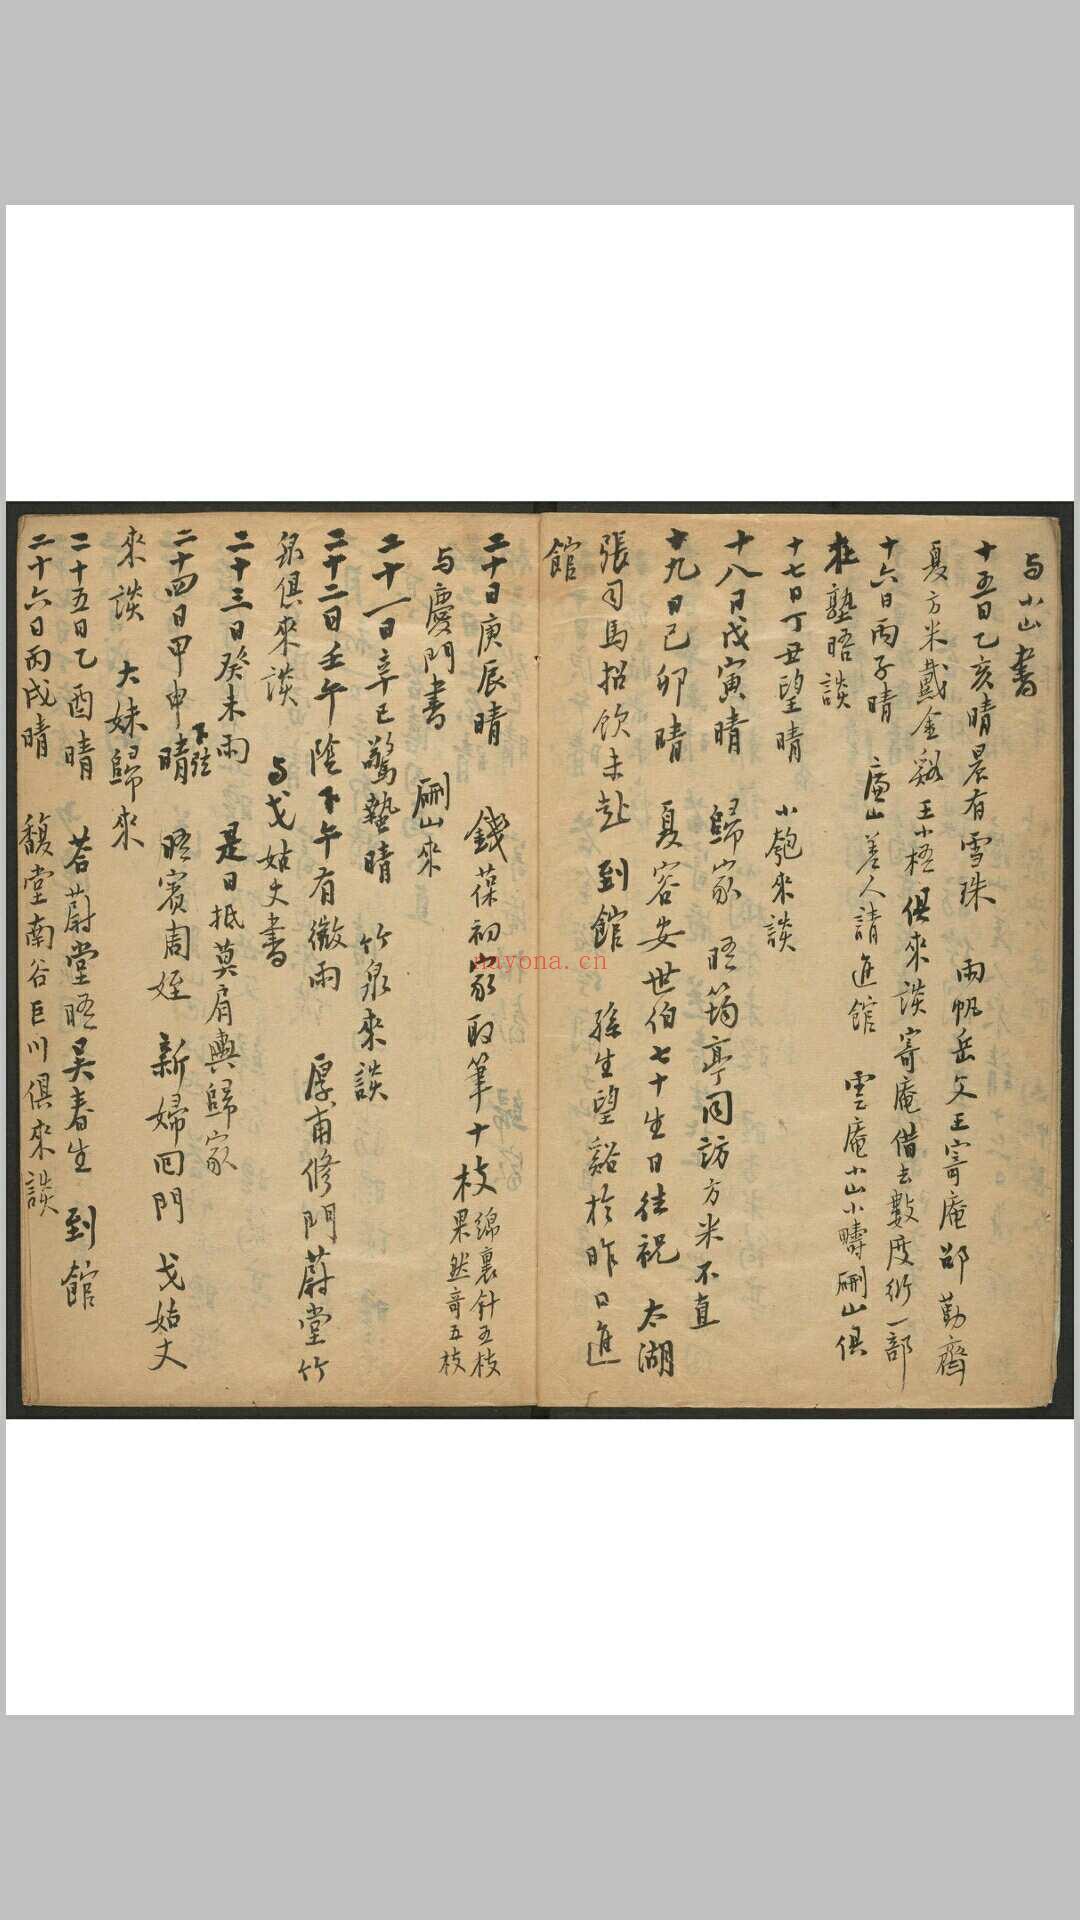 与小山書
十五日乙亥晴晨有雪珠 雨帆岳文王寄庵邵勤齋
夏方米戴金谿王小梧俱來談寄庵借去數度衍一部
十六日丙子晴 廉山差人請進館 雲庵小山小疇刪山俱
在塾晤談
十七日丁丑望晴 小匏來談
十八日戊寅晴 歸家 晤筠亭同訪方米不直
十九日己卯晴 夏容安世伯七十生日往祝 太湖
張司馬招飲未赴 到館 孫生望谿於昨日進
館
二十日庚辰晴 錢葆初家取筆十枝 綿裏針五枝 果然奇五枝
与慶門書 刪山來
二十一日辛巳驚蟄晴 竹泉來談
二十二日壬午陰下午有微雨 厚甫修門蔚堂竹
泉俱來談 与戈姑丈書
二十三日癸未雨 是日抵莫肩輿歸家
二十四日甲申下弦晴 晤賓周姪 新婦回門 戈姑丈
來談 大妹歸來
二十五日乙酉晴 若蔚堂晤吴春生 到館
二十六日丙戌晴 馥堂南谷巨川俱來談
nayona.cn